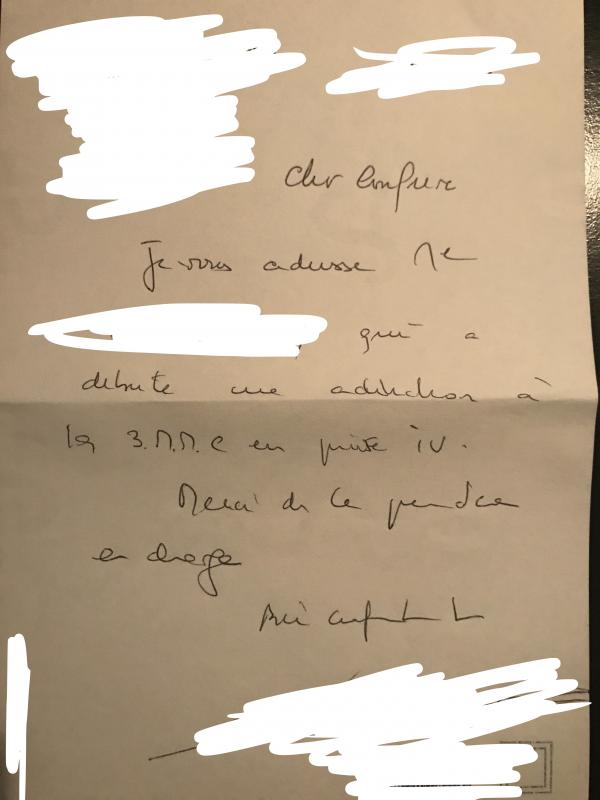 Cher Confrère
Je vous adresse Me
qui a
debute une addiction à
la 3.M.M.C en prise IV.
Merci de le prendre
en charge
Bien confraternellement